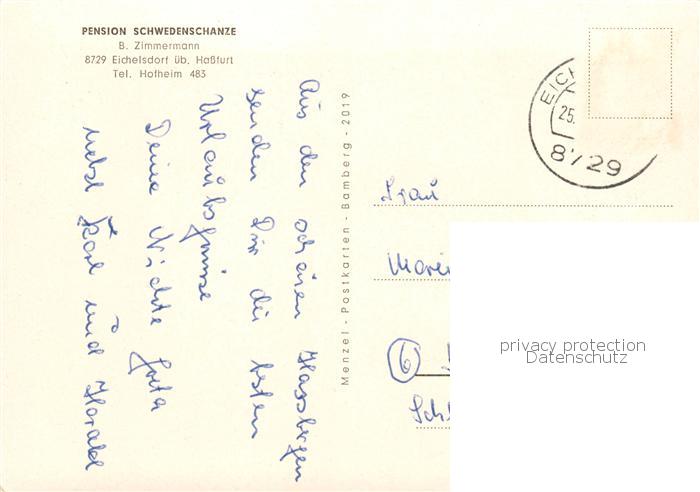 PENSION SCHWEDENSCHANZE
B. Zimmermann
8729 Eichelsdorf üb. Haßfurt
Tel. Hofheim 483
Aus den schönen Hassbergen
senden Dir die besten
Urlaubsgrüsse
Deine Nichte
nebst Karl und Harald
Menzel - Postkarten - Bamberg - 2019
EICH
25.
8729
Frau
6
privacy protection
Datenschutz